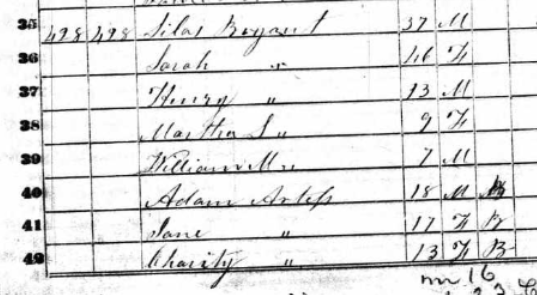 35 498 498 Silas Bryant 37 M
36 Sarah " 46 F
37 Henry " 13 M
38 Martha L " 9 F
39 William M " 7 M
40 Adam Artis 18 M B
41 Jane " 17 F B
42 Charity " 13 F B
16